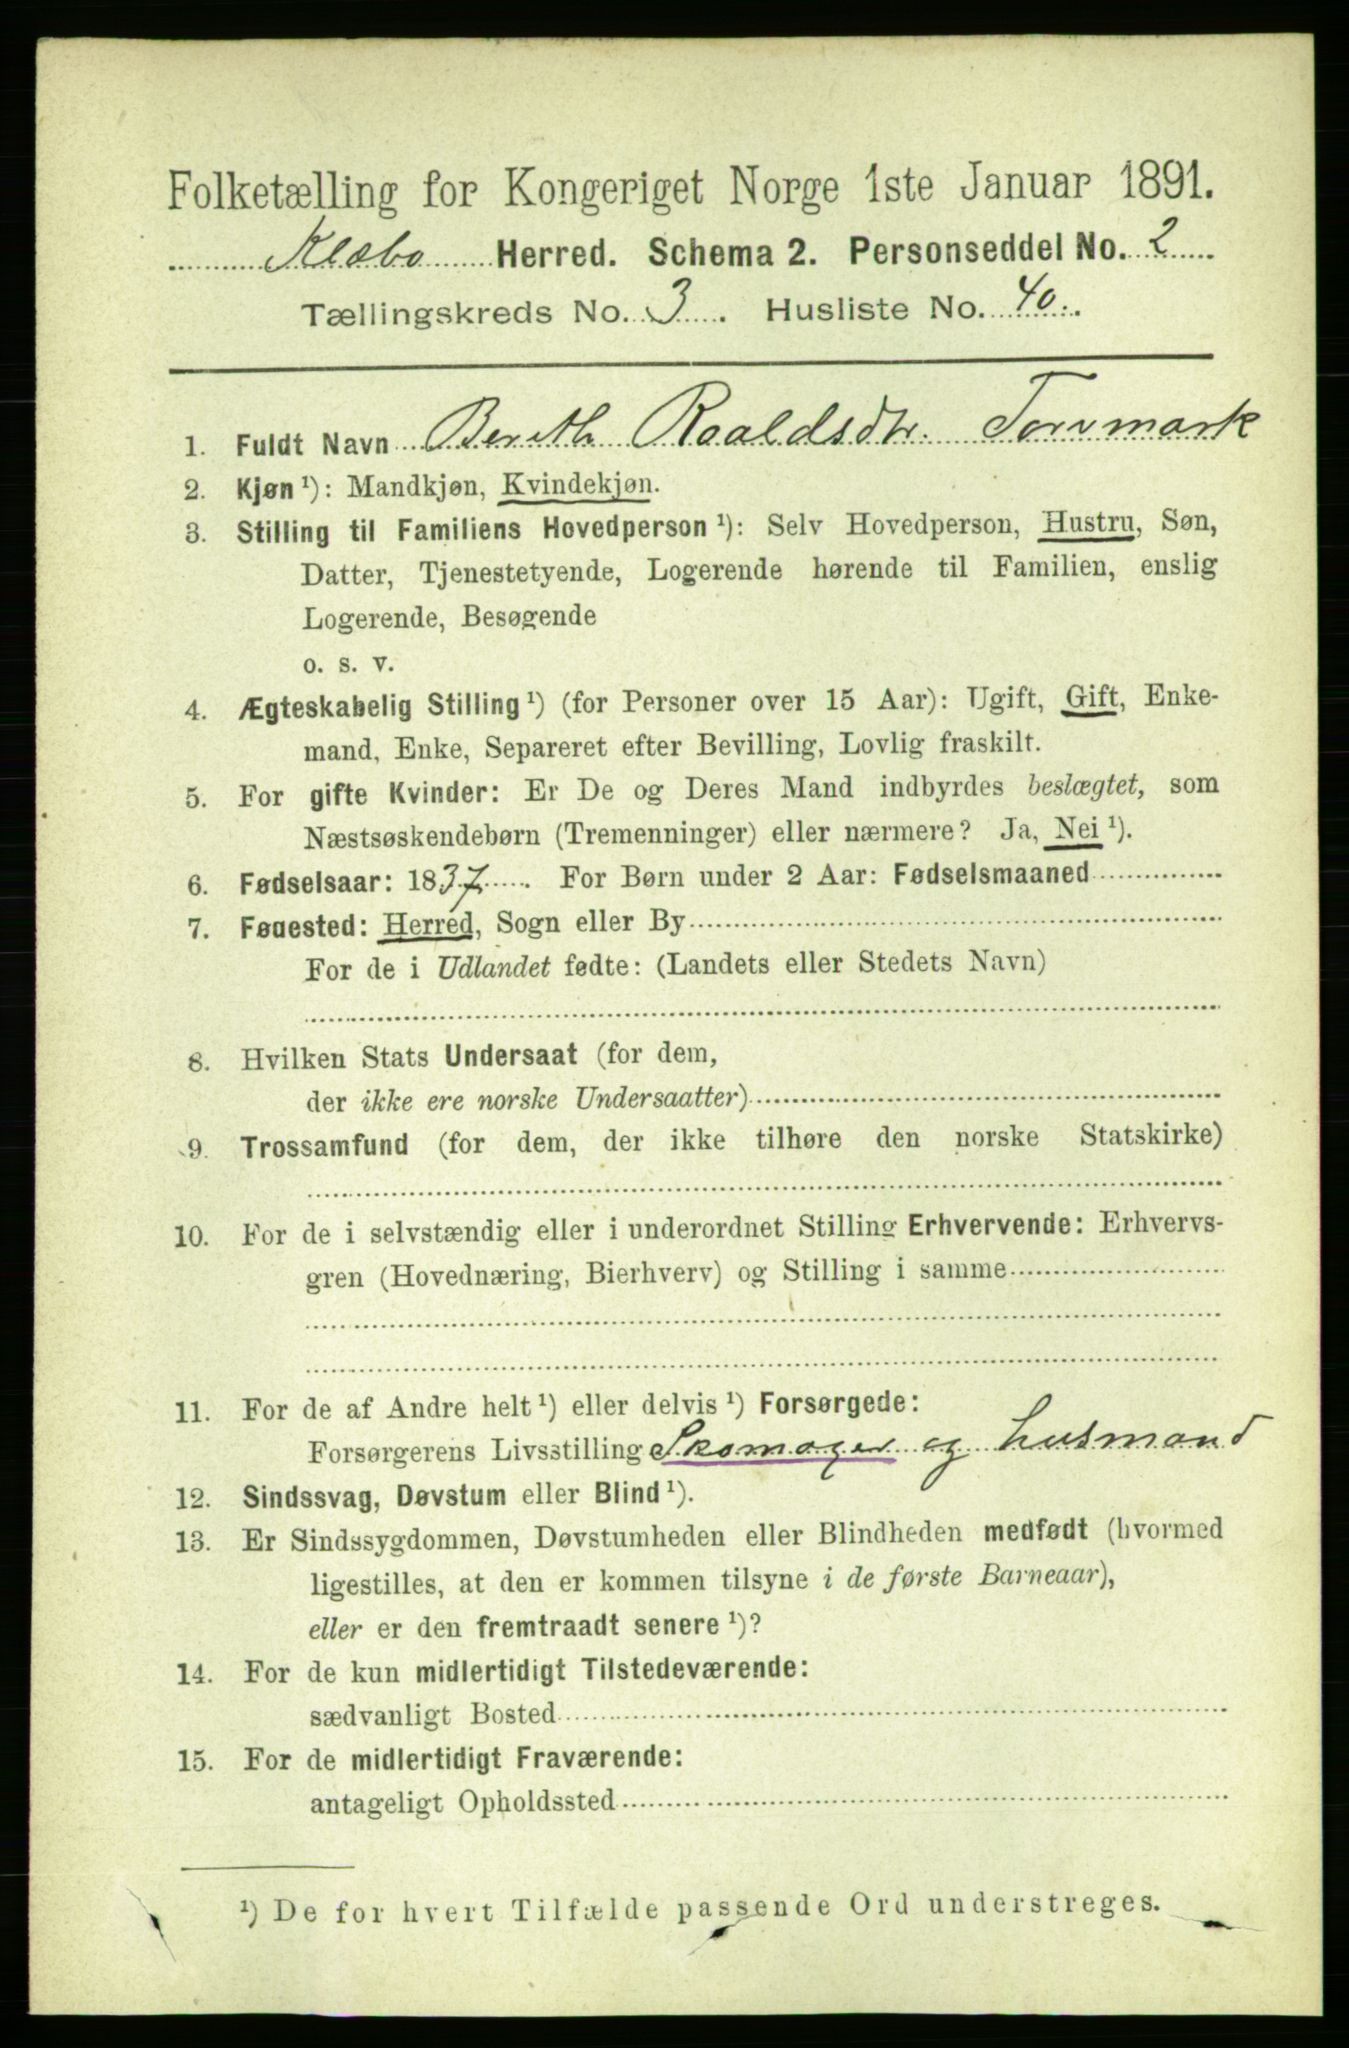 Folketælling for Kongeriget Norge 1ste Januar 1891.
Klæbo Herred. Schema 2. Personseddel No. 2
Tællingskreds No. 3. Husliste No. 40.
1. Fuldt Navn Berith Roaldsdtr. Torvmark
2. Kjøn ¹): Mandkjøn, Kvindekjøn.
3. Stilling til Familiens Hovedperson ¹): Selv Hovedperson, Hustru, Søn,
Datter, Tjenestetyende, Logerende hørende til Familien, enslig
Logerende, Besøgende
o. s. v.
4. Ægteskabelig Stilling ¹) (for Personer over 15 Aar): Ugift, Gift, Enke-
mand, Enke, Separeret efter Bevilling, Lovlig fraskilt.
5. For gifte Kvinder: Er De og Deres Mand indbyrdes beslægtet, som
Næstsøskendebørn (Tremenninger) eller nærmere? Ja, Nei ¹).
6. Fødselsaar: 1837. For Børn under 2 Aar: Fødselsmaaned
7. Føuested: Herred, Sogn eller By
For de i Udlandet fødte: (Landets eller Stedets Navn)
8. Hvilken Stats Undersaat (for dem,
der ikke ere norske Undersaatter)
9. Trossamfund (for dem, der ikke tilhøre den norske Statskirke)
10. For de i selvstændig eller i underordnet Stilling Erhvervende: Erhvervs-
gren (Hovednæring, Bierhverv) og Stilling i samme
11. For de af Andre helt ¹) eller delvis ¹) Forsørgede:
Forsørgerens Livsstilling Skomager og husmand
12. Sindssvag, Døvstum eller Blind ¹).
13. Er Sindssygdommen, Døvstumheden eller Blindheden medfødt (hvormed
ligestilles, at den er kommen tilsyne i de første Barneaar),
eller er den fremtraadt senere ¹)?
14. For de kun midlertidigt Tilstedeværende:
sædvanligt Bosted
15. For de midlertidigt Fraværende:
antageligt Opholdssted
¹) De for hvert Tilfælde passende Ord understreges.